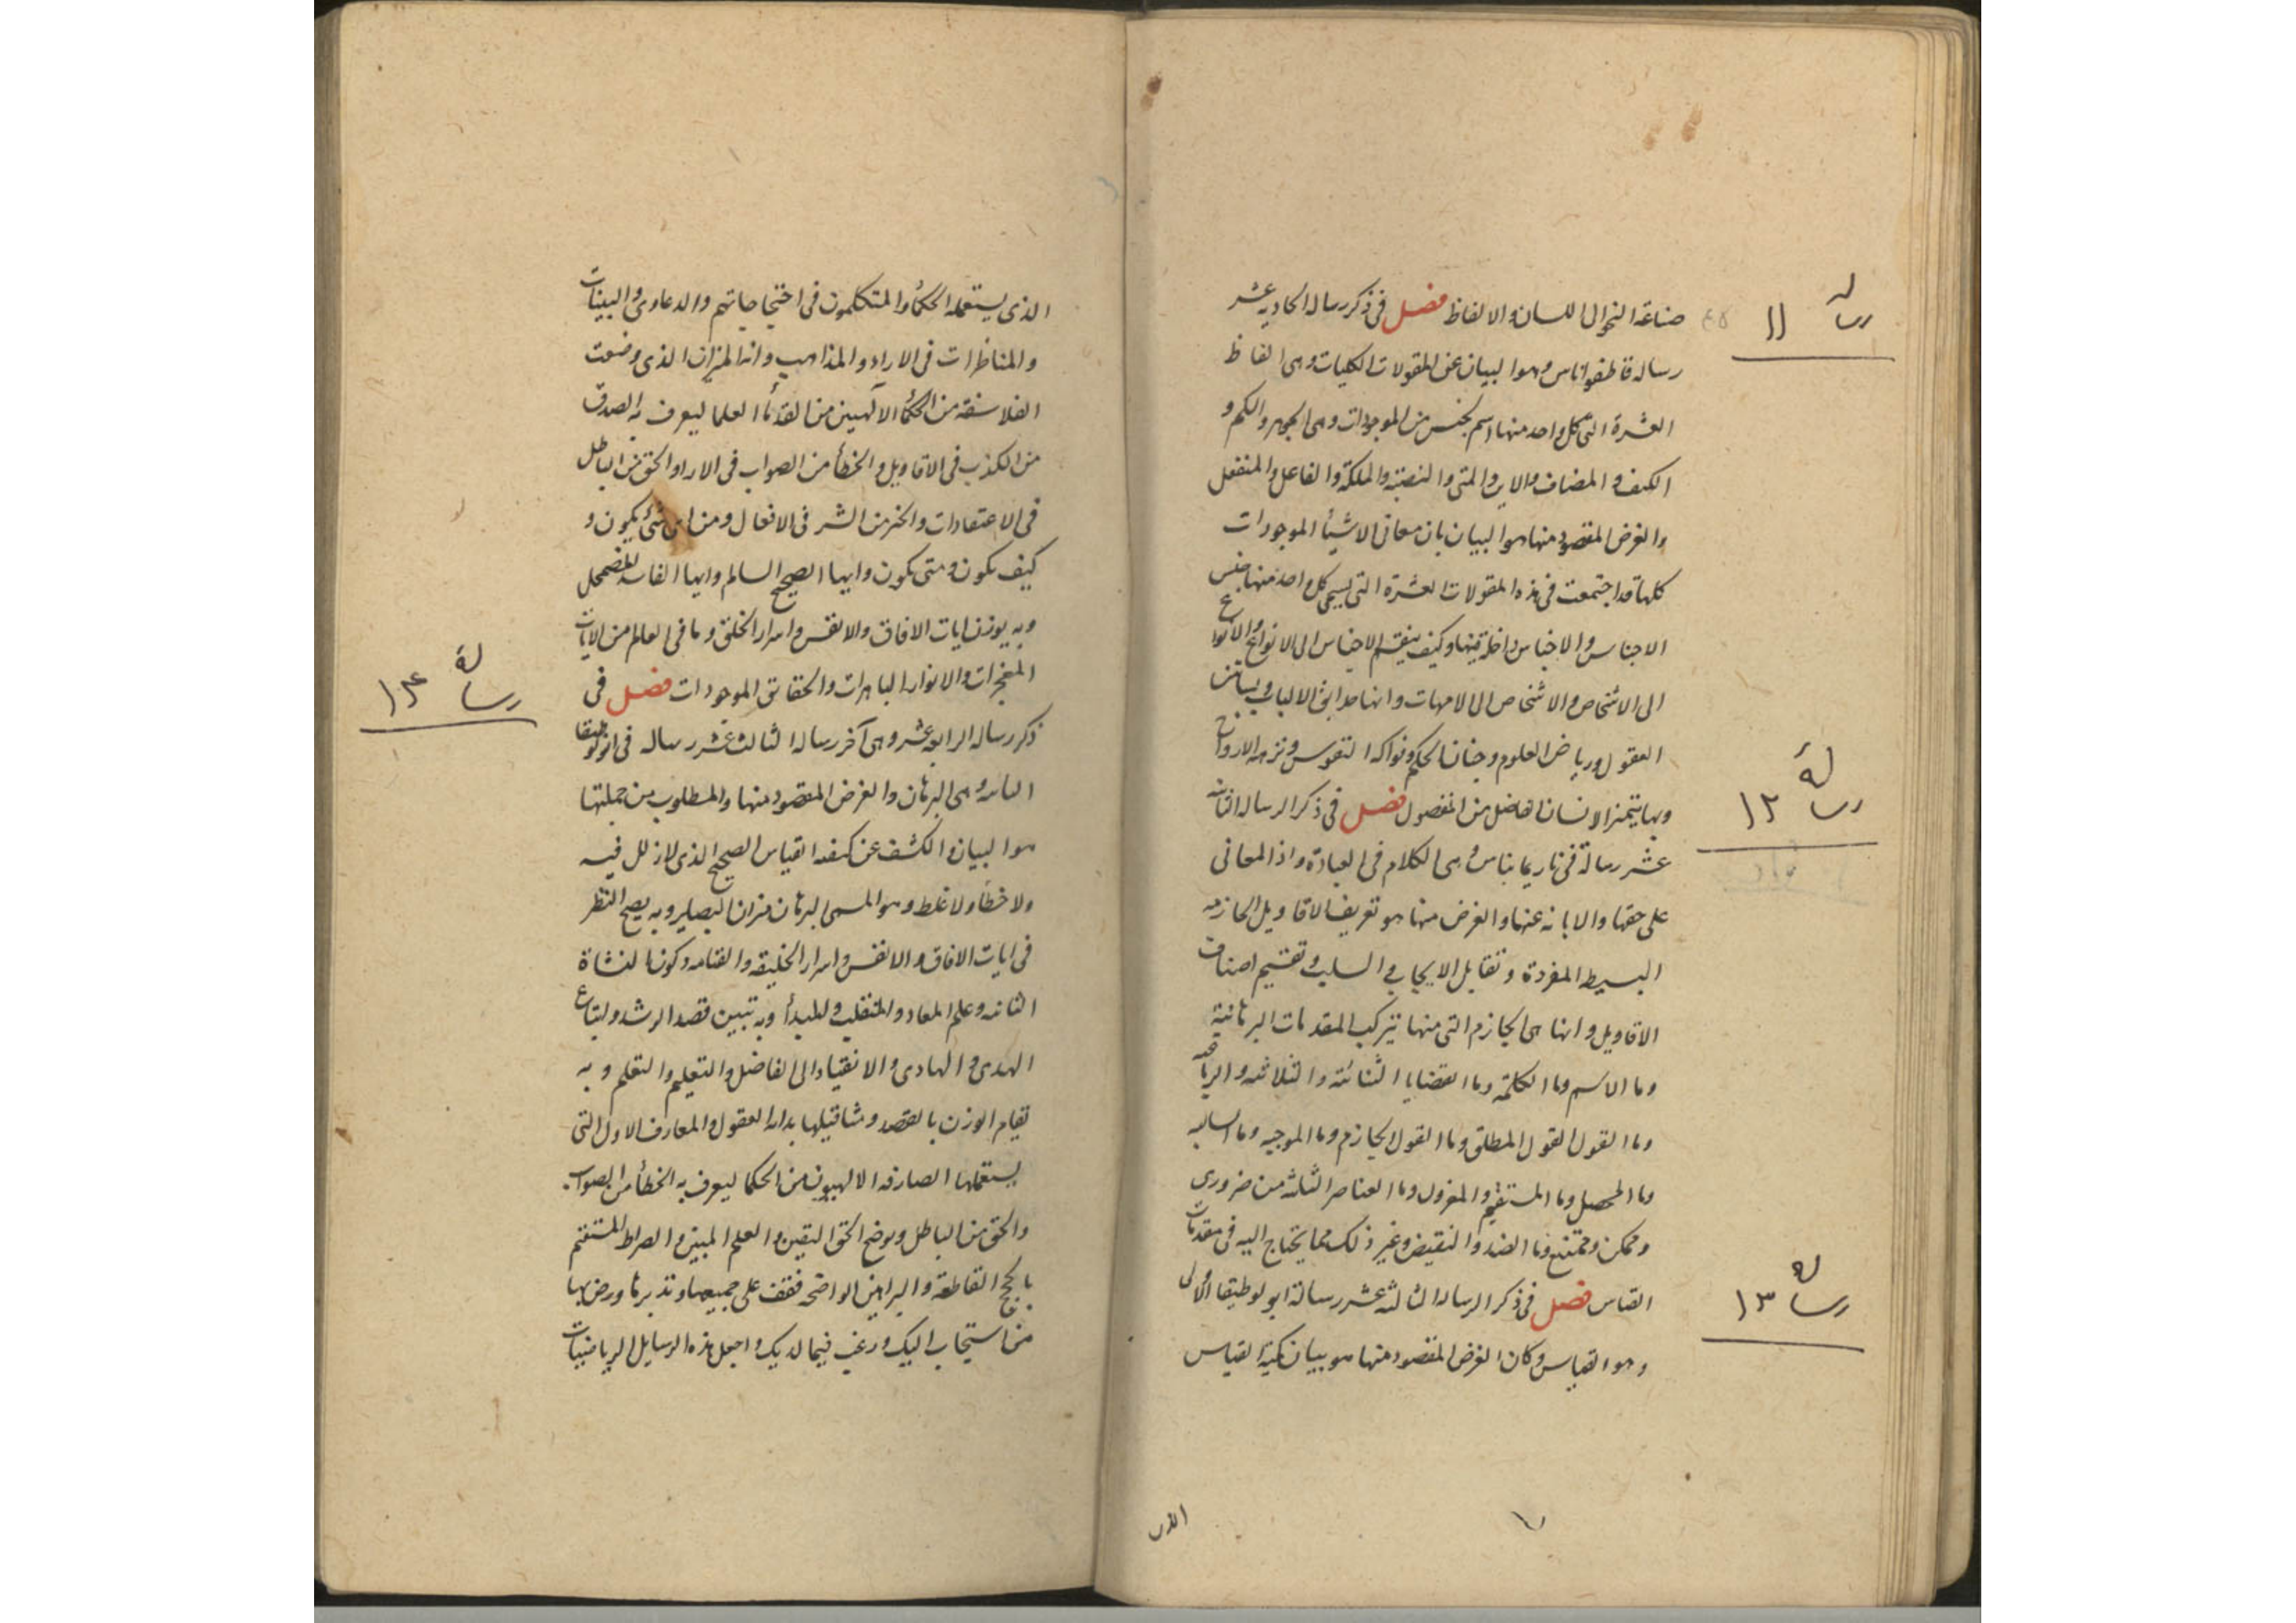 صناعة النحو الى اللسان والالفاظ فصل فى ذكر رساله الحاديه عشر
رساله قاطيغوراس وهو البيان عن المقولات الكليات وهى الفاظ
العشرة التى كل واحد منها اسم لجنس من الموجودات وهى الجوهر والكم و
الكيف و المضاف والاين والمتى والنصبة والملكة والفاعل والمنفعل
والغرض المقصود منها هو البيان بان معانى الاشيأ الموجودات
كلها قد اجتمعت فى هذه المقولات العشرة التى يسمى كل واحد منها جنس
الاجناس والاجناس داخلة فيها وكيف ينقسم الاجناس الى الانواع والانواع
الى الاشخاص والاشخاص الى الامهات وانها حدايق الالباب وبساتين
العقول ورياض العلوم وجنان الحكم وفواكه النفوس ونزهه الارواح
وبها يتميز الانسان الفاضل من المفضول فصل فى ذكر الرساله الثانيه
عشر رسالة فى باريمانياس وهى الكلام فى العبادة واذا المعانى
على حقها والابانه عنها والغرض منها هو تعريف الاقاويل الجازمه
البسيطه المفردة و تقابل الايجاب و السلب وتقسيم اصناف
الاقاويل وانها هى الجازم التى منها تتركب المقدمات البرهانية
وما الاسم وما الكلمة وما القضايا الثنائيه والثلاثيه والرباعيه
وما القول القول المطلق وما القول الجازم وما الموجبه وما السالبه
وما المحصل وما المستقيم والمعزول وما العناصر الثلثه من ضرورى
وممكن وممتنع وما الضد والنقيض وغير ذلك مما يحتاج اليه فى مقدمات
القياس فصل فى ذكر الرساله الثالثه عشر رسالة ابولوطيقا الاولى
وهو القياس وكان الغرض المقصود منها هو بيان كمية القياس
الذى
رسالة ١١
رسالة ١٢
رسالة ١٣
الذى يستعمله الحكمأ والمتكلمون فى احتجاجاتهم والدعاوى والبينات
والمناظرات فى الاراء والمذاهب وانه الميزان الذى وضعت
الفلاسفة من الحكمأ الآلهيين من القدمأ العلما ليعرف به الصدق
من الكذب فى الاقاويل والخطأ من الصواب فى الارا والحق من الباطل
فى الاعتقادات والخير من الشر فى الافعال ومن اى شئ يكون و
كيف يكون ومتى يكون وايها الصحيح السالم وايها الفاسد المضمحل
وبه يوزن ايات الافاق والانفس واسرار الخلق وما فى العالم من الايات
المعجزات والانوار الباهرات والحقايق الموجودات فصل فى
ذكر رساله الرابعه عشر وهى آخر رساله الثالث عشر رساله فى انولوطيقا
الثانيه وهى البرهان والغرض المقصود منها والمطلوب من جملتها
هو البيان والكشف عن كيفيه القياس الصحيح الذى لا زلل فيه
ولا خطأ ولا غلط وهو المسمى البرهان ميزان البصاير وبه يصح النظر
فى ايات الافاق والانفس واسرار الخليقه والقيامه وكون النشاة
الثانيه وعلم المعاد والمنقلب والمبدأ وبه تبيين قصد الرشد واتباع
الهدى والهادى والانقياد الى الفاضل والتعليم والتعلم وبه
تقام الوزن بالقصد ومثاقيلها بداية العقول والمعارف الاول التى
يستعملها الصارفه الالهيون من الحكما ليعرف به الخطأ من الصواب
والحق من الباطل ويوضح الحق اليقين والعلم المبين والصراط المستقيم
بالحجج القاطعة والبراهين الواضحه فقف على جميعها وتدبرها ورض بها
من استجاب اليك ورغب فيما لديك واجعل هذه الرسايل الرياضيات
رسالة ١٤